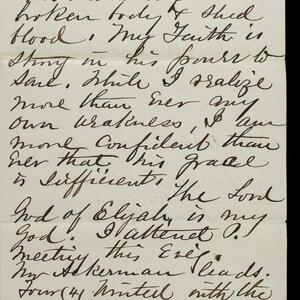 broken body & shed
blood. My Faith is
strong in his power to
save. While I realize
more than Ever my
own weakness, I am
more confident than
Ever that his grace
is sufficient.
The Lord
God of Elijah, is my
God. I attend P.
meeting this Eve'g.
Mr Ackerman leads.
Four (4) United with the